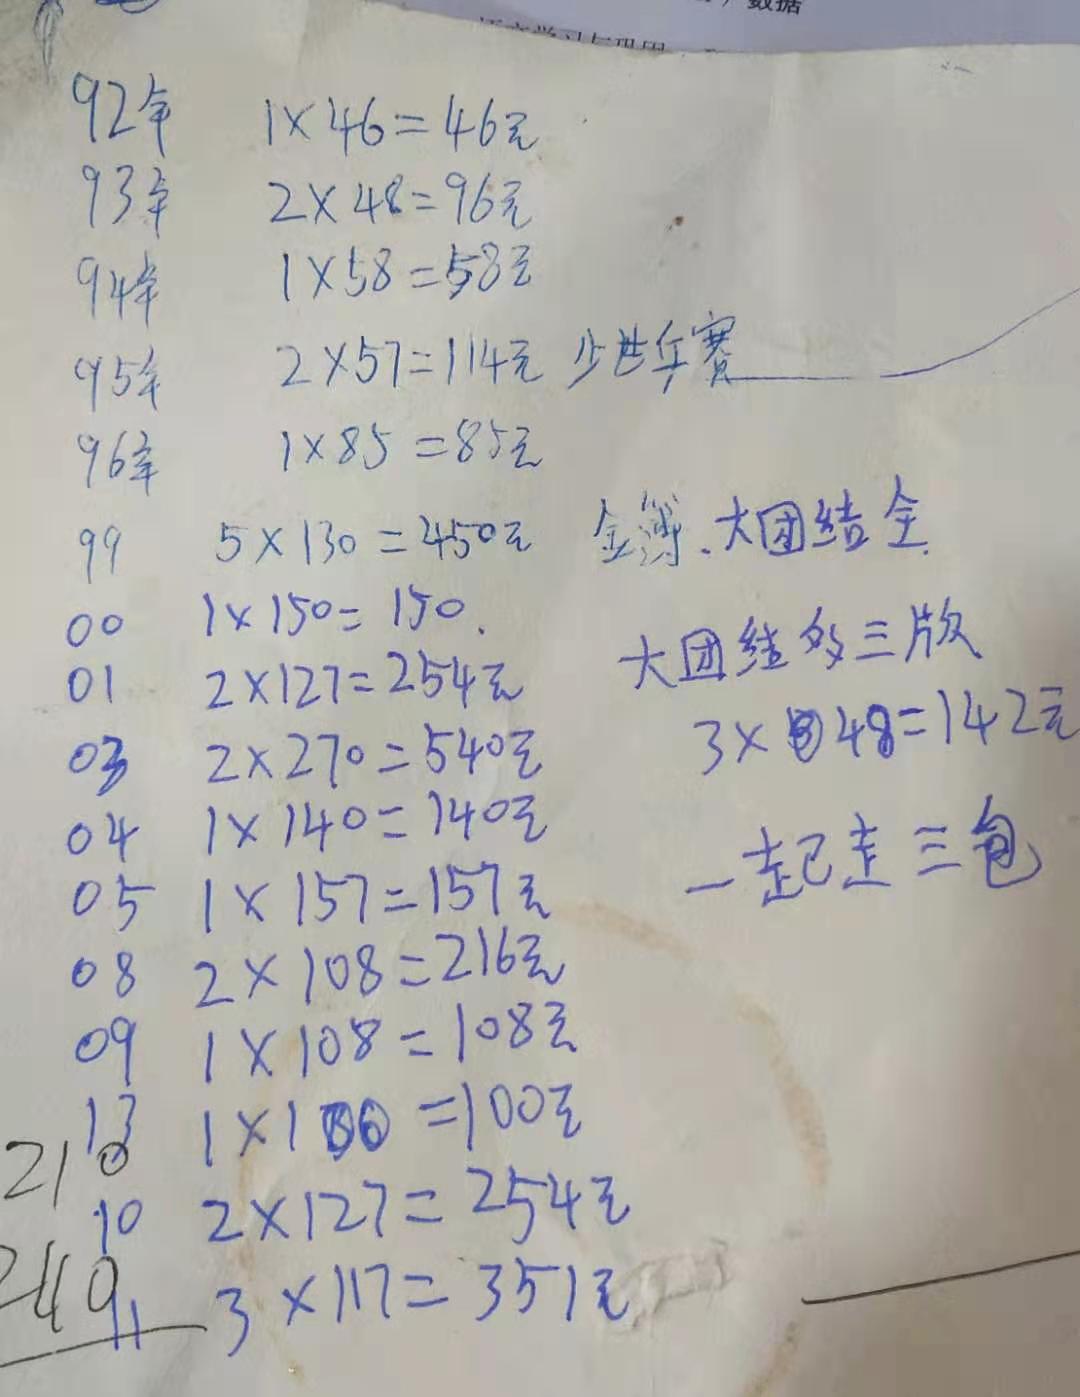 数据
92年 1×46=46元
93年 2×48=96元
94年 1×58=58元
95年 2×57=114元 少世乒赛
96年 1×85=85元
99 5×130=450元 全薄.大团结全
00 1×150=150.
01 2×127=254元
大团结 三版
03 2×270=540元
3×48=142元
04 1×140=140元
一起走三包
05 1×157=157元
08 2×108=216元
09 1×108=108元
13 1×100=100元
210
10 2×127=254元
240
11 3×117=351元